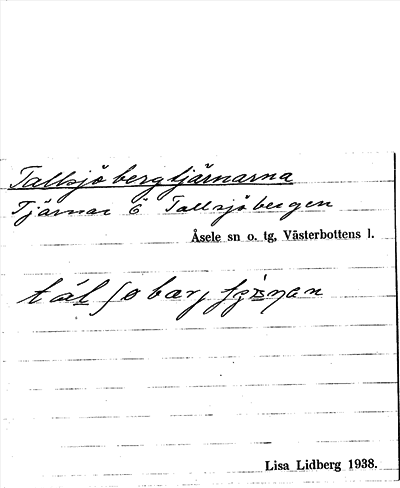 Tallsjöbergtjärnarna
Tjärnar Ö Tallsjöbergen
Åsele sn o. tg, Västerbottens l.
Lisa Lidberg 1938.